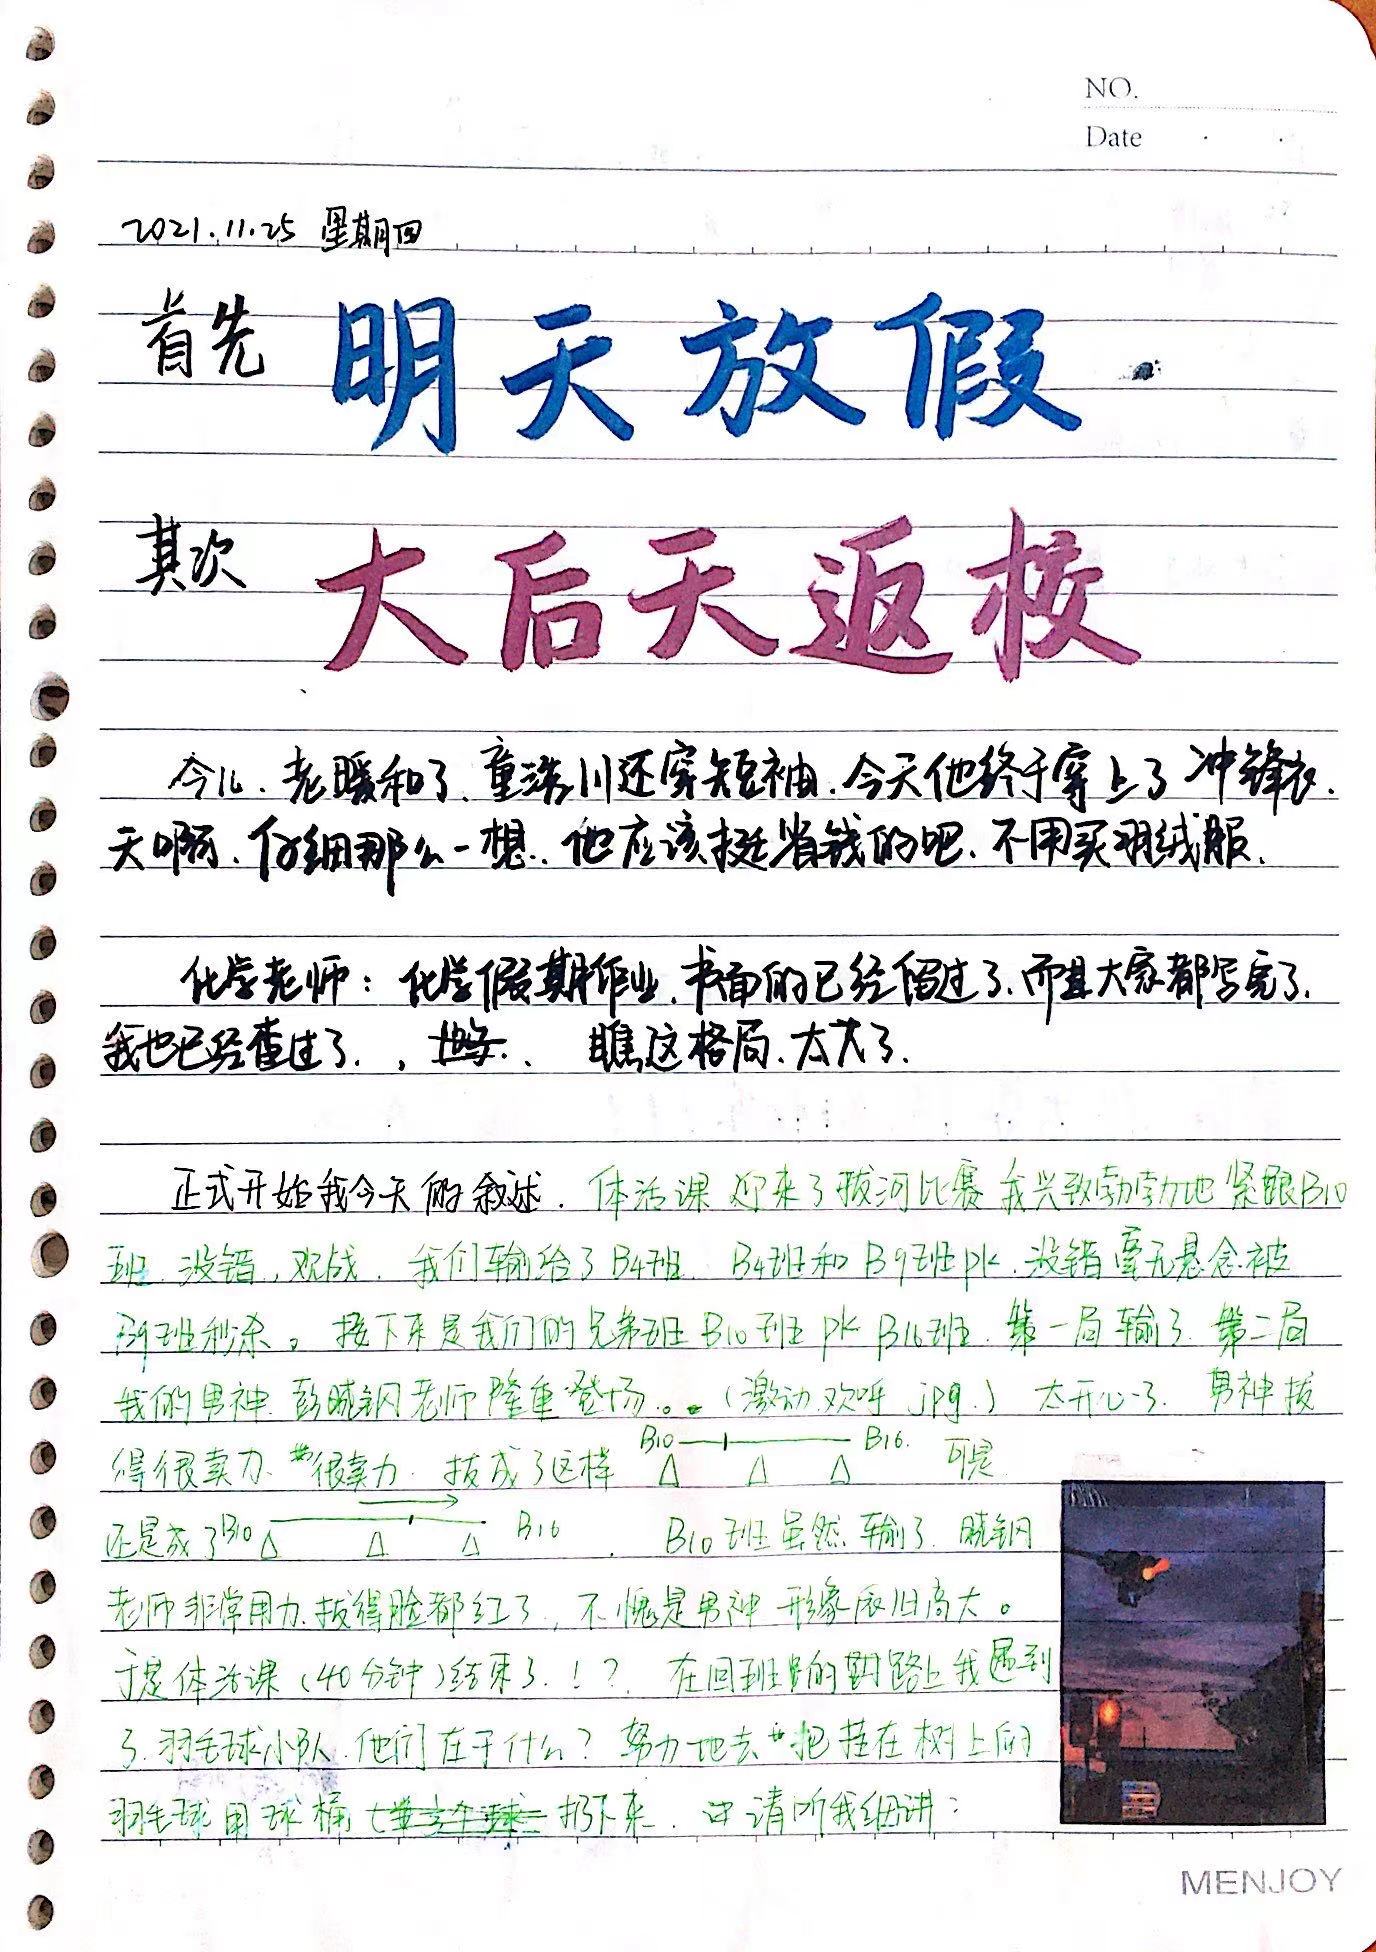 NO.
Date
2021.11.25 星期四
首先 明天放假
其次 大后天返校
今儿.老暖和了.童浩川还穿短袖.今天他终于穿上了冲锋衣.
天啊.仔细那么一想.他应该挺省钱的吧.不用买羽绒服.
化学老师：化学假期作业.书面的已经留过了.而且大家都写完了.
我也已经查过了., 瞧这格局.太大了.
正式开始我今天的叙述.体活课迎来了拔河比赛 我兴致勃勃地紧跟B10
班.没错,观战.我们输给了B4班.B4班和B9班pk.没错毫无悬念被
B9班秒杀。接下来是我们的兄弟班B10班pk B16班.第一局输了.第二局
我的男神.彭晓钢老师隆重登场。。(激动欢呼.jpg.)太开心了.男神拔
得很卖力.很卖力.拔成了这样 B10 B16. 可是
还是成了B10 B16 . B10班虽然输了.晓钢
老师非常用力.拔得脸都红了,不愧是男神 形象依旧高大。
于是体活课(40分钟)结束了.！？.在回班的路上我遇到
了.羽毛球小队.他们在干什么？努力地去把挂在树上的
羽毛球用球桶 扔下来. 请听我细讲：
MENJOY